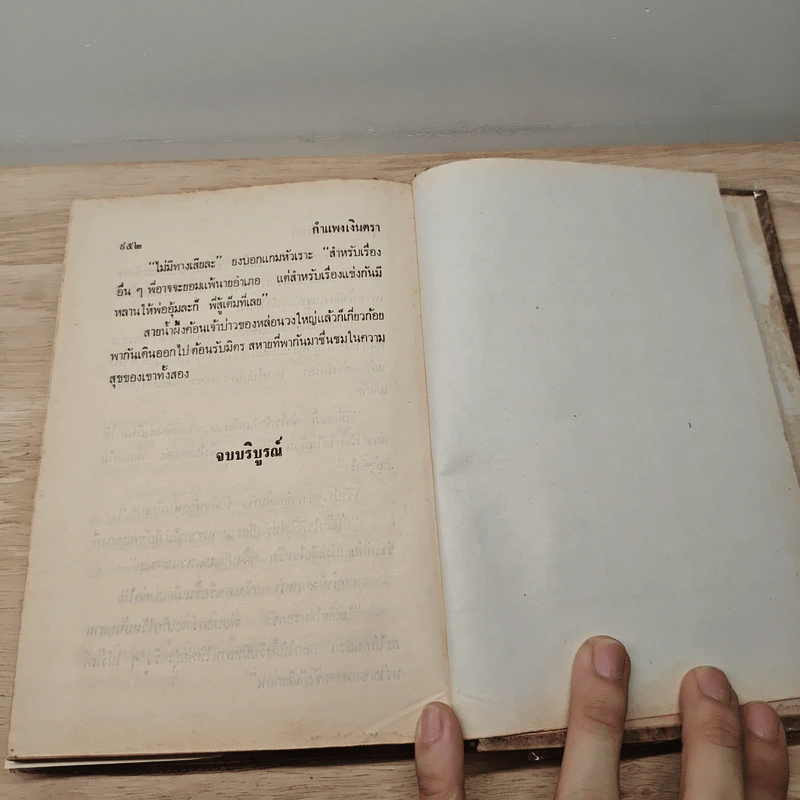 กำแพงเงินตรา
๙๕๒
"ไม่มีทางเสียละ" ยงบอกแกมหัวเราะ "สำหรับเรื่อง
อื่น ๆ พี่อาจจะยอมแพ้นายอำเภอ แต่สำหรับเรื่องแข่งกันมี
หลานให้พ่ออุ้มละก็ พี่สู้เต็มที่เลย"
สายน้ำผึ้งค้อนเจ้าบ่าวของหล่อนวงใหญ่แล้วก็เกี่ยวก้อย
พากันเดินออกไปต้อนรับมิตร สหายที่พากันมาชื่นชมในความ
สุขของเขาทั้งสอง
จบบริบูรณ์